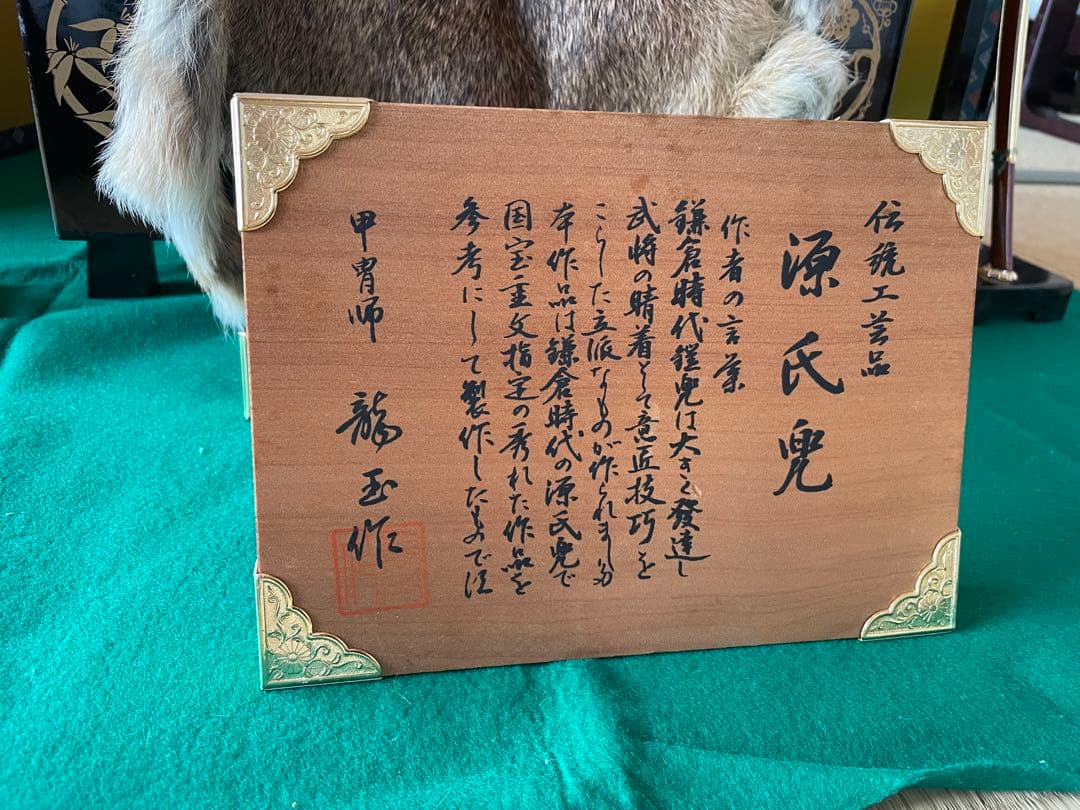 伝統工芸品
源氏兜
作者の言葉
鎌倉時代鎧兜は大きく發達し
武将の晴着として意匠技巧を
こらした立派なものが作られました
本作品は鎌倉時代の源氏兜で
国宝重文指定の秀れた作品を
参考にして製作したもので
甲冑師 龍玉作